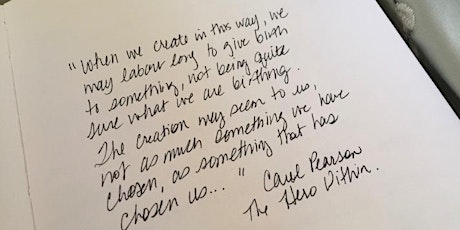 "When we create in this way, we
may labour long to give birth
to something, not being quite
sure what we are birthing.
The creation may seem to us,
not as much something we have
chosen, as something that has
chosen us..."
Carol Pearson
The Hero Within.